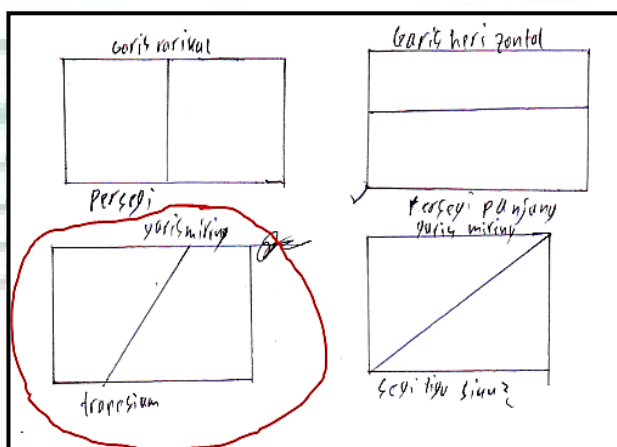 Garis horizontal
Persegi
Persegi panjang
garis miring
garis miring
trapesium
segi tiga siku2